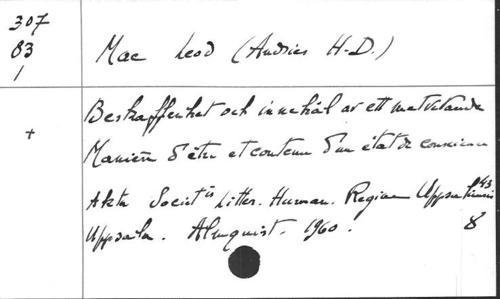 307
83
1
Mac Leod (Andries H-D.)
Beskaffenhet och innehål av ett medvetande
+
Manière d'être et contenu d'un état de conscience
Akta Societis Litter. Human. Regiae Uppsaliensis 43
Uppsala. Almquist. 1960. 8